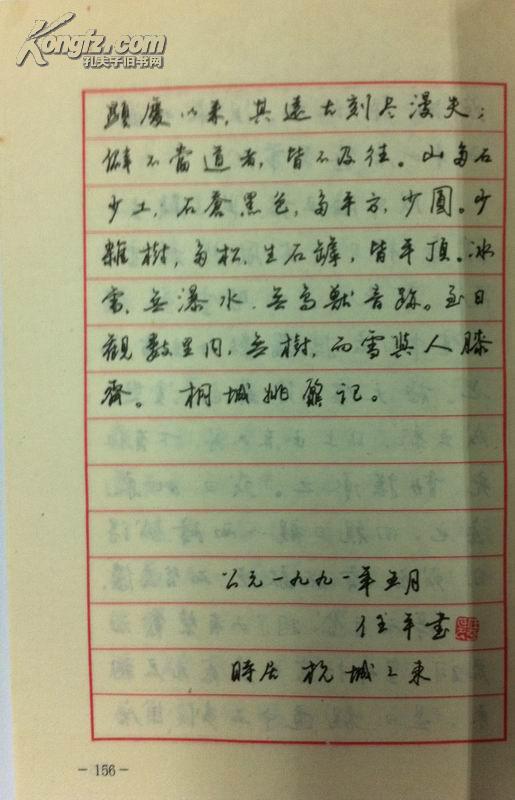 Kongfz.com
孔夫子旧书网
顯慶以來,其遠古刻盡漫失;
僻不當道者,皆不及往。山多石
少土,石蒼黑色,多平方,少圓。少
雜樹,多松,生石罅,皆平頂。冰
雪,無瀑水,無鳥獸音跡。至日
觀數里內,無樹,而雪與人膝
齊。桐城姚鼐記。
公元一九九一年五月
任平書
時居杭城之東
- 156 -